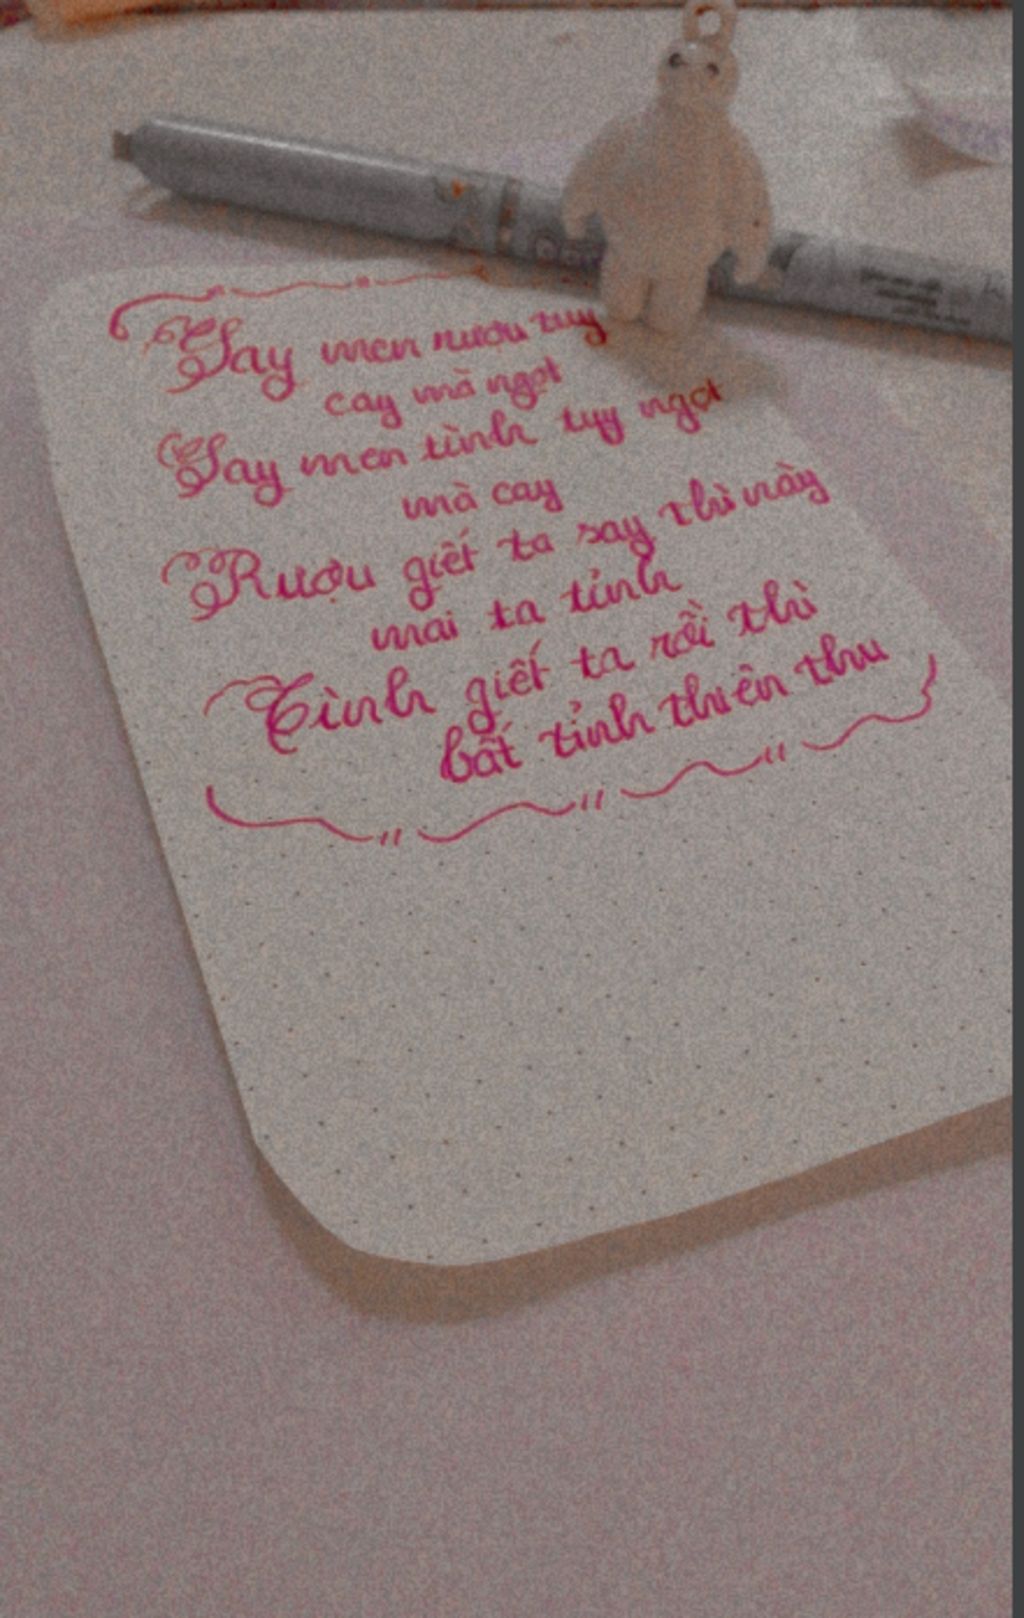 Say men rượu tuy
cay mà ngọt
Say men tình tuy ngọt
mà cay
Rượu giết ta say thì này
mai ta tỉnh
Tình giết ta rồi thì
bất tỉnh thiên thu